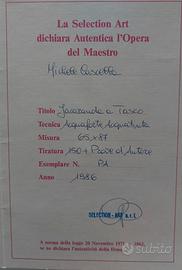 La Selection Art
dichiara Autentica l'Opera
del Maestro
Michele Cascella
Titolo Jacaranda a Taxco
Tecnica Acquaforte Acquatinta
Misura 65x87
Tiratura 150 + Prove d'Autore
Esemplare N. PA
Anno 1986
SELECTION - ART s.r.l.
A norma della legge 20 Novembre 1971
subito